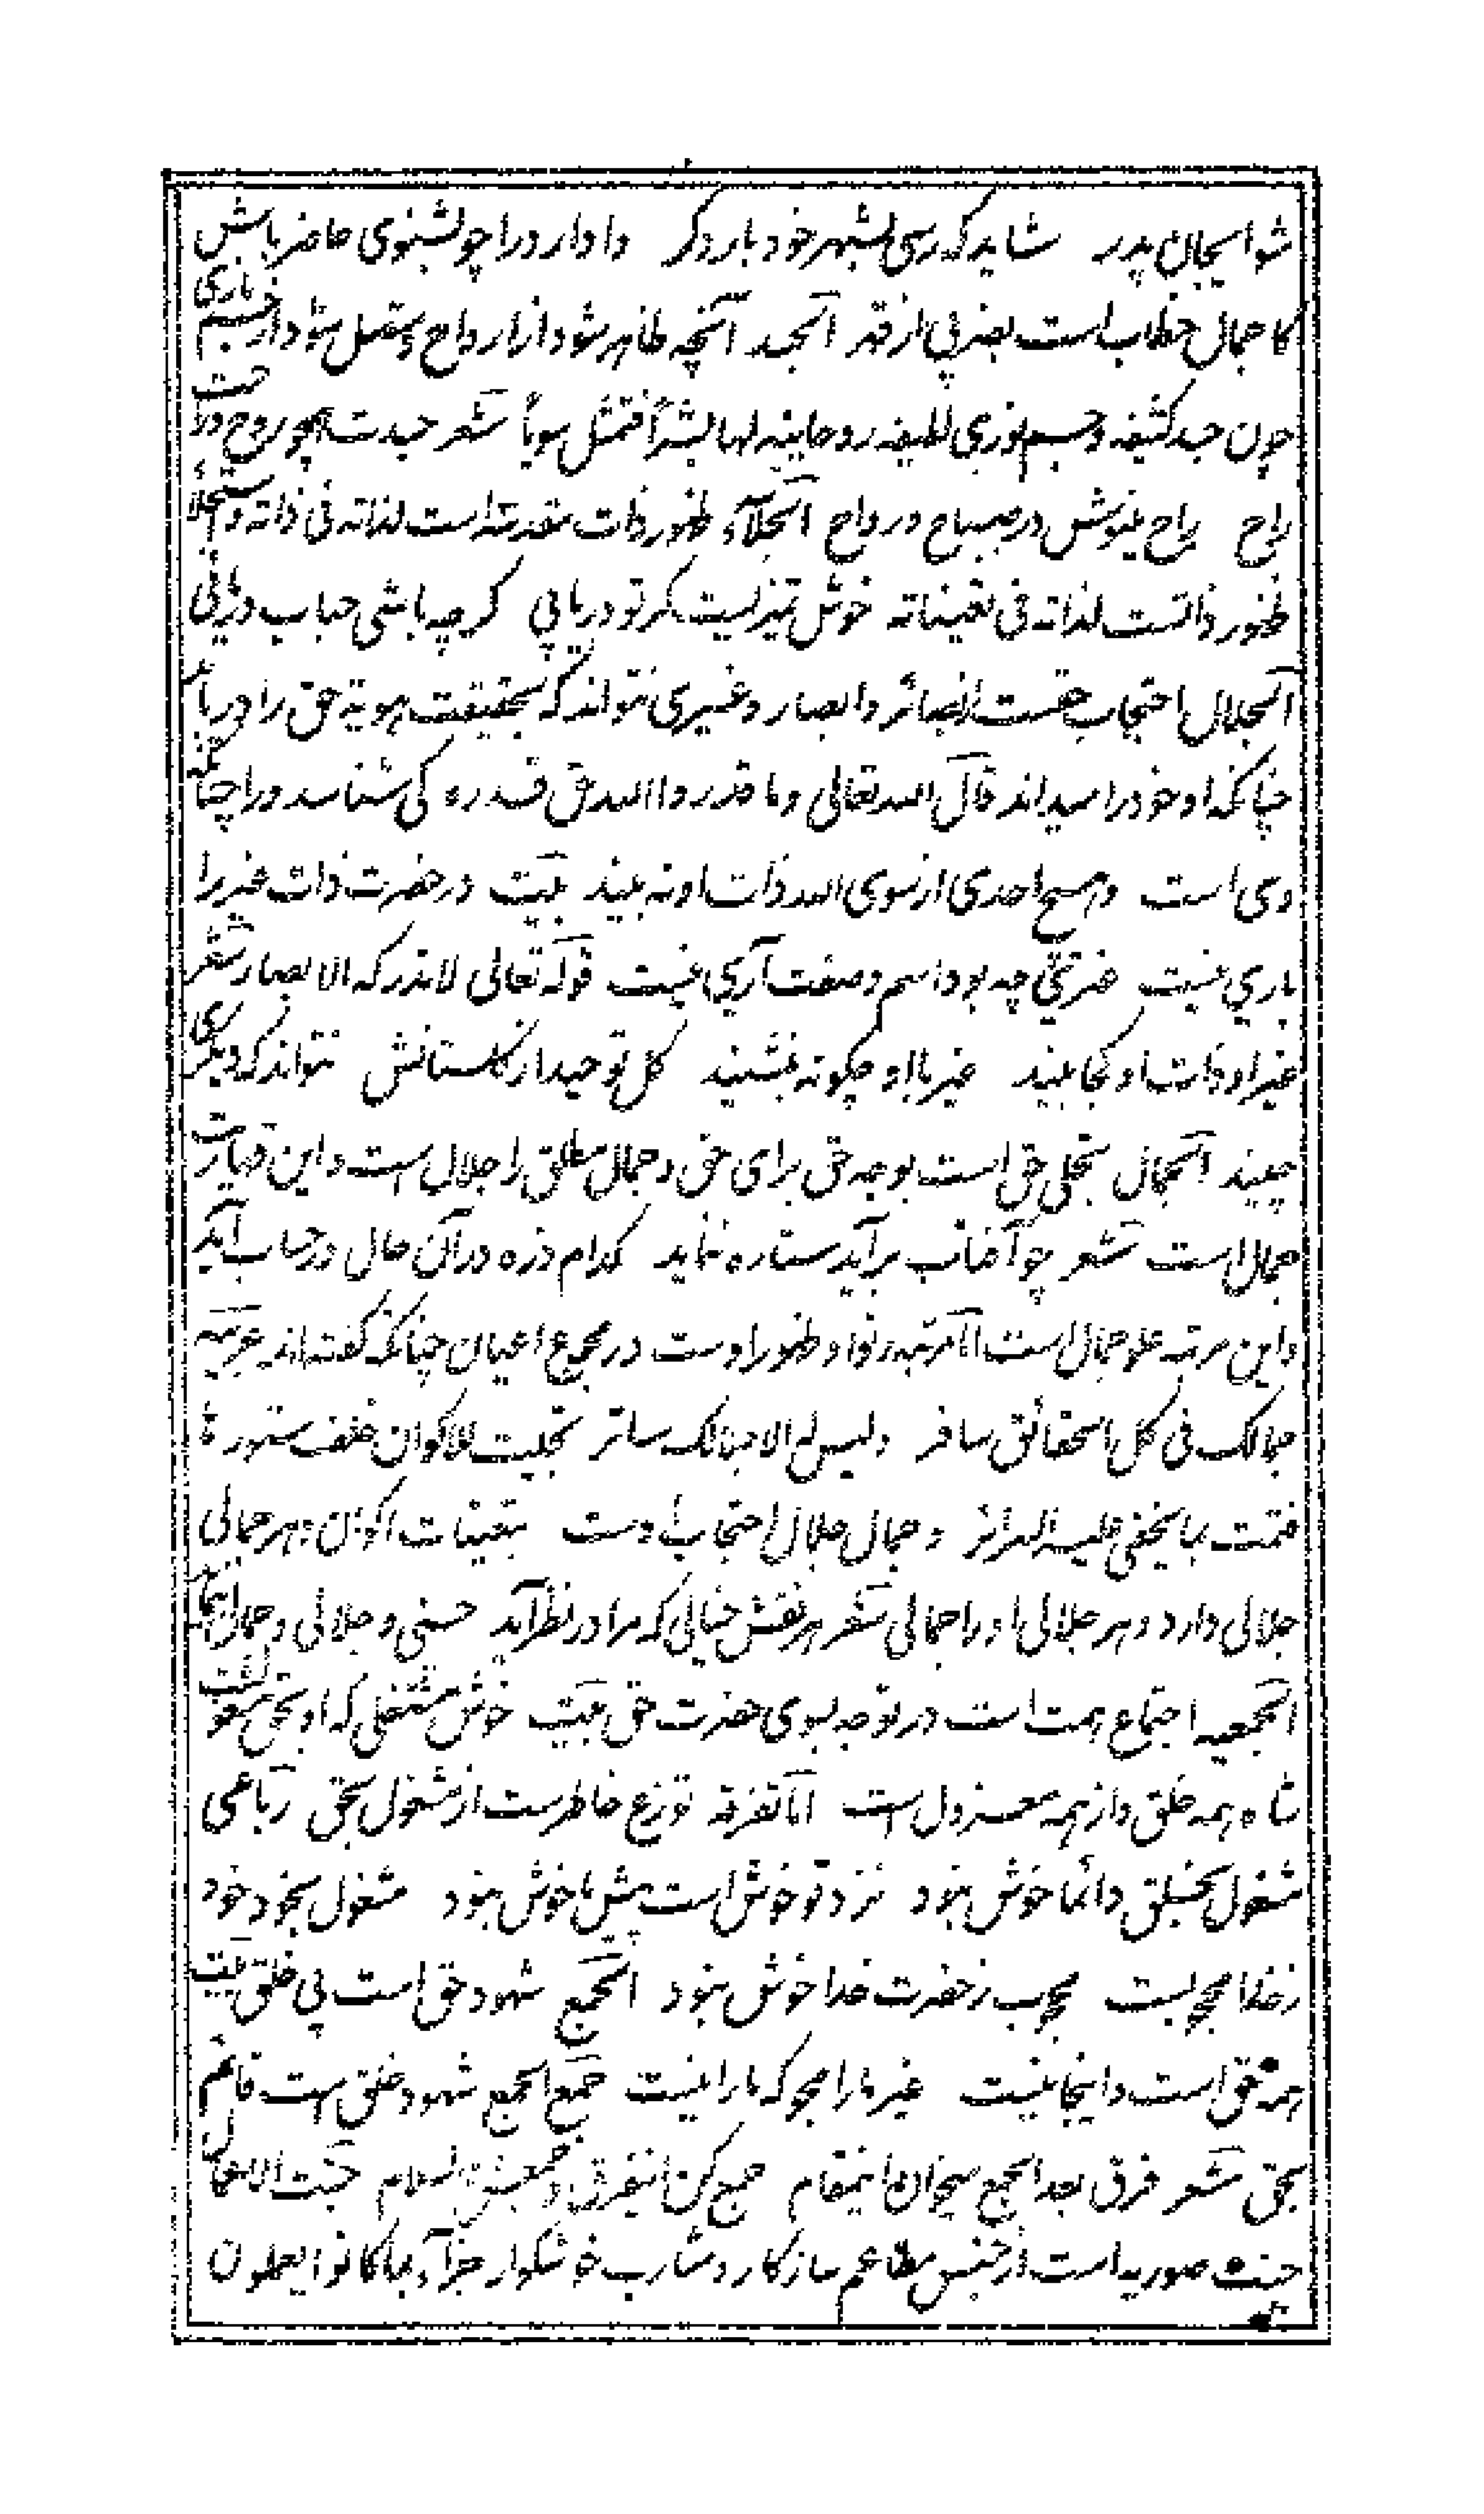 شو ایجان پدر شاید که رسی بشهر خود بار دگر دادار ورا چو بشنوی حاضر باش
کاجمال خطاب است بضربی از قهر الجسد آنچه ظاهر شود از ارواح و متمثل شود از جسم ناری
چون جسد کثیفه و جسم نوری لطیفه روحانیه لها بشراً فتمثل سویاً شعر جسدت همچو روح و راحت
راح راح مینوش در صباح و رواح الجلآء ظهور ذات مقدسه است لذاته فی ذاته و استجلاء
ظهور ذاتست لذاته فی تعیناته خوش تمیزیست گر تو دریابی گرچه باشی حباب دریائی
الجلال احتجاب حقست از بصائر و ابصار و غیری نتواند که بحقیقت هویة حق را دریابد
چنانکه او خود را میداند قال الله تعالی و ما قدروا الله حق قدره کی شناسد ورا چنانکه
وی است و هیچ احدی از سوی الله ذات او نه بیند بیت در حضرت ذات غیر را
باری نیست غیرتی چه بود اسم و صفت آری نیست قوله تعالی لا تدرکه الابصار شعر
غیر او ذات او کجا بیند غیر با او چگونه بنشیند گل توحید از گلستانش نتواند که دیگری
چیند الجمال تجلی حق است بوجه حق برای حق و جمال مطلق را جلال است و این قهاریت
جمال است شعر چو آفتاب برآید ستاره ننماید کدام ذره در آن حال در حساب آید
و این مرتبه علو جمال است اما مرتبه دنو او ظهور اوست در مجموع اعیان چنانکه گفته اند عربیه
جمالک فی کل الحقائق سافر و لیس له الا جلالک ساتر تجلیت للاکوان خلف ستورة
فنمت بما یخفی علیه السرائر و جمال جلال احتجاب اوست بتعینات اکوان و هر جمالی
جلالی دارد و هر جلالی او را جمالی شعر هر نقش خیالی که مرا در نظر آید حسنی و جلالی و جمالی بنماید
الجمعیه اجتماع همت است در توجه بسوی حضرت حق بیت خوش مشتغلی که او بحق مشغولست
شاه همه خلق و از همه معزول است اما تفرقه توزع خاطرست از مشغول بحق رباعی
مشغول بخلق دائما خوش نبود نزد تو خوش است پیش ما خوش نبود مشغول بخود خود
ز خدا محجوبست محجوب ز حضرت خدا خوش نبود الجمع شهود حق است بی خلق بیت
همه حق است و اینجا نیست غیر ما را مجو که ما را نیست جمع الجمع شهود خلق است قائم
بحق شعر فرق بعد الجمع میخوان اینمقام جمع کن این فرق و جمعیش والسلام جنت الافعال
جنت صوریه است از جنس مطاعم سازگار و مشارب خوشگوار جزآء بما کانوا یعملون